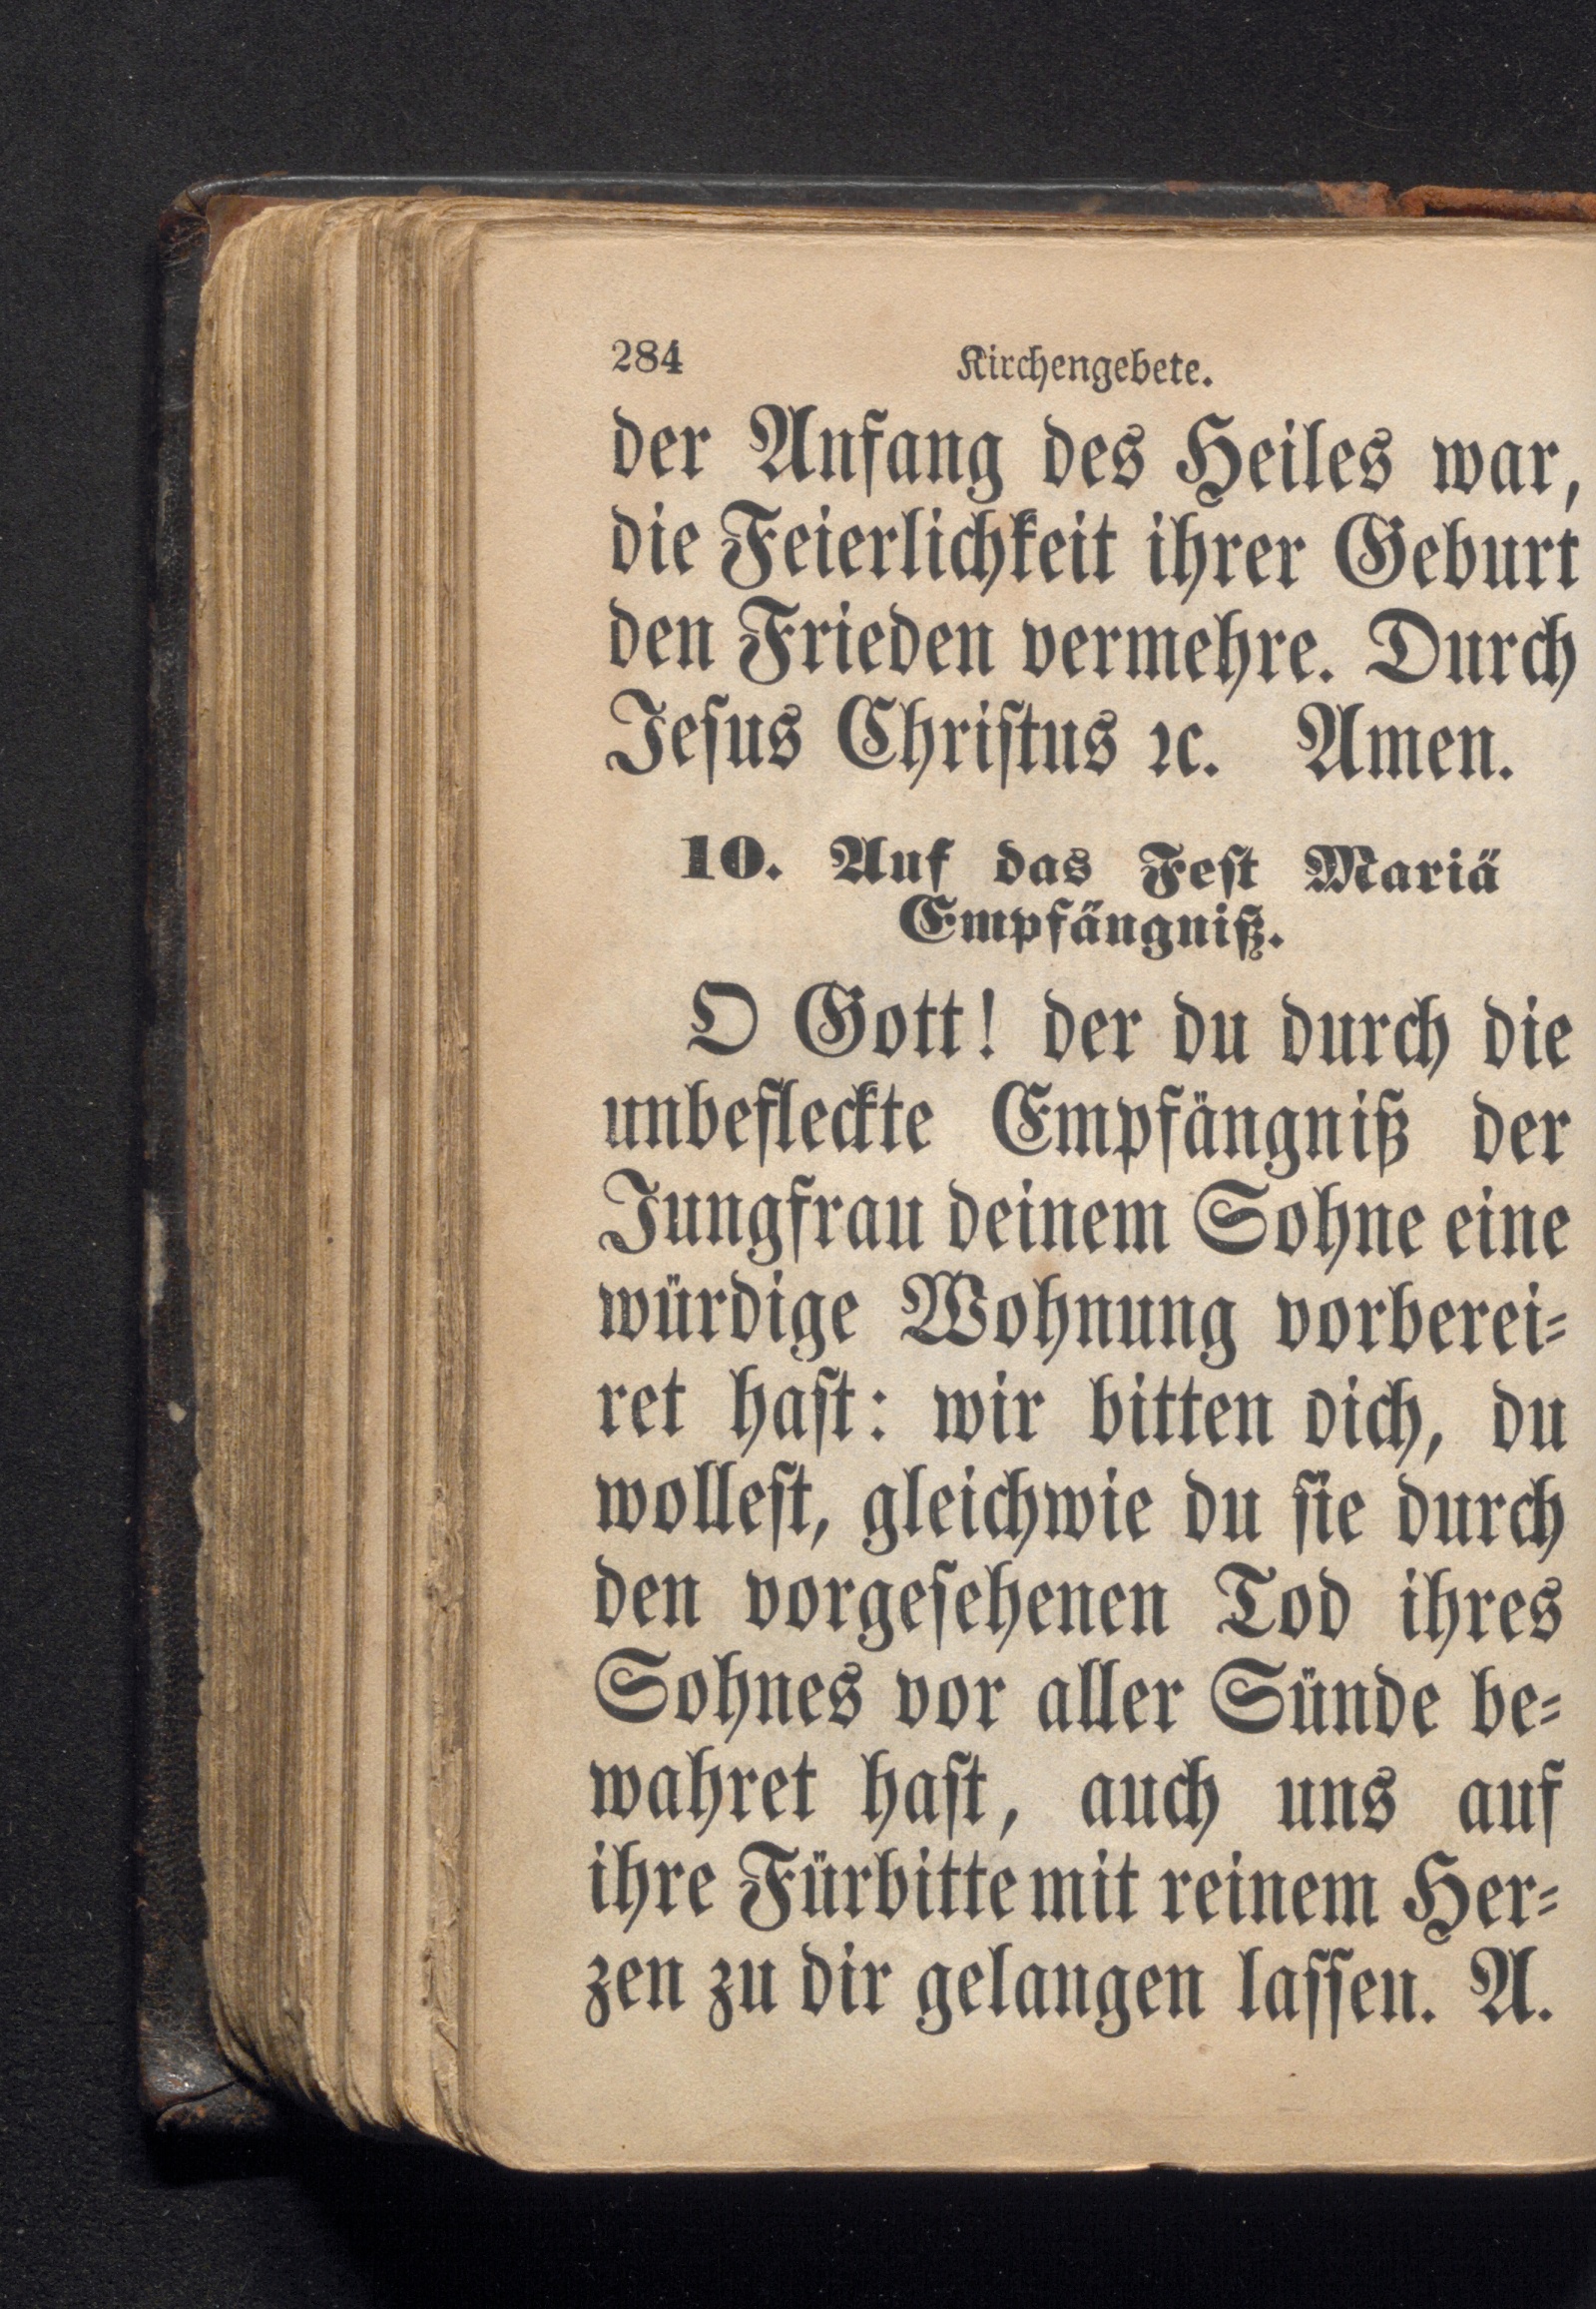 284 Kirchengebete.
der Anfang des Heiles war,
die Feierlichkeit ihrer Geburt
den Frieden vermehre. Durch
Jeſus Chriſtus ꝛc. Amen.
10. Auf das Feſt Mariä
Empfängniß.
O Gott! der du durch die
unbefleckte Empfängniß der
Jungfrau deinem Sohne eine
würdige Wohnung vorberei⸗
ret haſt: wir bitten dich, du
wolleſt, gleichwie du ſie durch
den vorgeſehenen Tod ihres
Sohnes vor aller Sünde be⸗
wahret haſt, auch uns auf
ihre Fürbitte mit reinem Her⸗
zen zu dir gelangen laſſen. A.